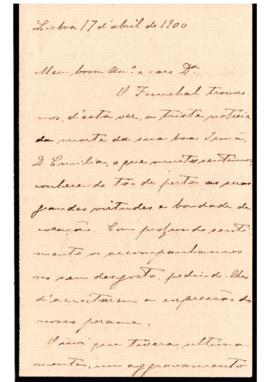 Lisboa 17 d'abril de 1900
Meu bom Am.º e caro Dr.
O Funchal trouxe
nos, d'esta vez, a triste noticia
da morte da sua boa Irmã
D. Emilia, o que muito sentimos,
conhecendo tão de perto as suas
grandes virtudes e bondade de
coração. Com profundo senti-
mento os acompanhamos
no seu desgosto, pedindo-lhes
d'acceitarem a expressão do
nosso pezame.
O que tivera ultima-
mente, um aggravamento